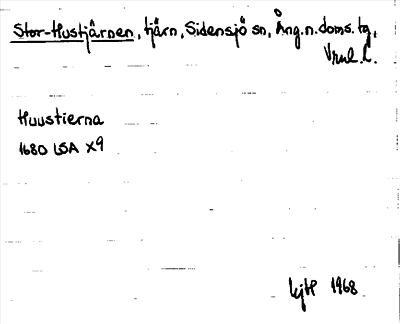 Stor-Hustjärnen, tjärn, Sidensjö sn, Ång.n.doms.tg,
Vnml. l.
Huustierna
1680 LSA X9
1968